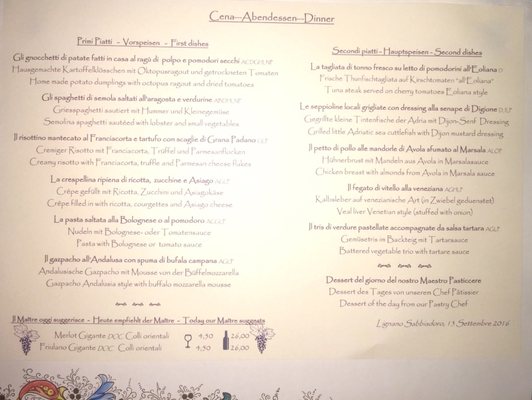 Cena—Abendessen—Dinner
Primi Piatti - Vorspeisen - First dishes
Gli gnocchetti di patate fatti in casa al ragù di polpo e pomodori secchi
Hausgemachte Kartoffelklösschen mit Oktopusragout und getrockneten Tomaten
Home made potato dumplings with octopus ragout and dried tomatoes
Gli spaghetti di semola saltati all'aragosta e verdurine
Griesspaghetti sautiert mit Hummer und Kleinegemüse
Semolina spaghetti sautéed with lobster and small vegetables
Il risottino mantecato al Franciacorta e tartufo con scaglie di Grana Padano
Cremiger Risotto mit Franciacorta, Trüffel und Parmesanflocken
Creamy risotto with Franciacorta, truffle and Parmesan cheese flakes
La crespellina ripiena di ricotta, zucchine e Asiago
Crêpe gefüllt mit Ricotta, Zucchini und Asiagokäse
Crêpe filled in with ricotta, courgettes and Asiago cheese
La pasta saltata alla Bolognese o al pomodoro
Nudeln mit Bolognese- oder Tomatensauce
Pasta with Bolognese or tomato sauce
Il gazpacho all'Andalusa con spuma di bufala campana
Andalusische Gazpacho mit Mousse von der Büffelmozzarella
Gazpacho Andalusia style with buffalo mozzarella mousse
Il Maître oggi suggerisce - Heute empfiehlt der Maître - Today our Maître suggests
Merlot Gigante DOC Colli orientali 4,50 26,00
Friulano Gigante DOC Colli orientali 4,50 26,00
Secondi piatti - Hauptspeisen - Second dishes
La tagliata di tonno fresco su letto di pomodorini all'Eoliana
Frische Thunfischtagliata auf Kirschtomaten "all'Eoliana"
Tuna steak served on cherry tomatoes Eoliana style
Le seppioline locali grigliate con dressing alla senape di Digione
Gegrillte kleine Tintenfische der Adria mit Dijon-Senf Dressing
Grilled little Adriatic sea cuttlefish with Dijon mustard dressing
Il petto di pollo alle mandorle di Avola sfumato al Marsala
Hühnerbrust mit Mandeln aus Avola in Marsalasauce
Chicken breast with almonds from Avola in Marsala sauce
Il fegato di vitello alla veneziana
Kalbsleber auf venezianische Art (in Zwiebel geduenstet)
Veal liver Venetian style (stuffed with onion)
Il tris di verdure pastellate accompagnate da salsa tartara
Gemüsetris im Backteig mit Tartarsauce
Battered vegetable trio with tartare sauce
Dessert del giorno del nostro Maestro Pasticcere
Dessert des Tages von unserem Chef Pâtissier
Dessert of the day from our Pastry Chef
Lignano Sabbiadoro, 13 Settembre 2016